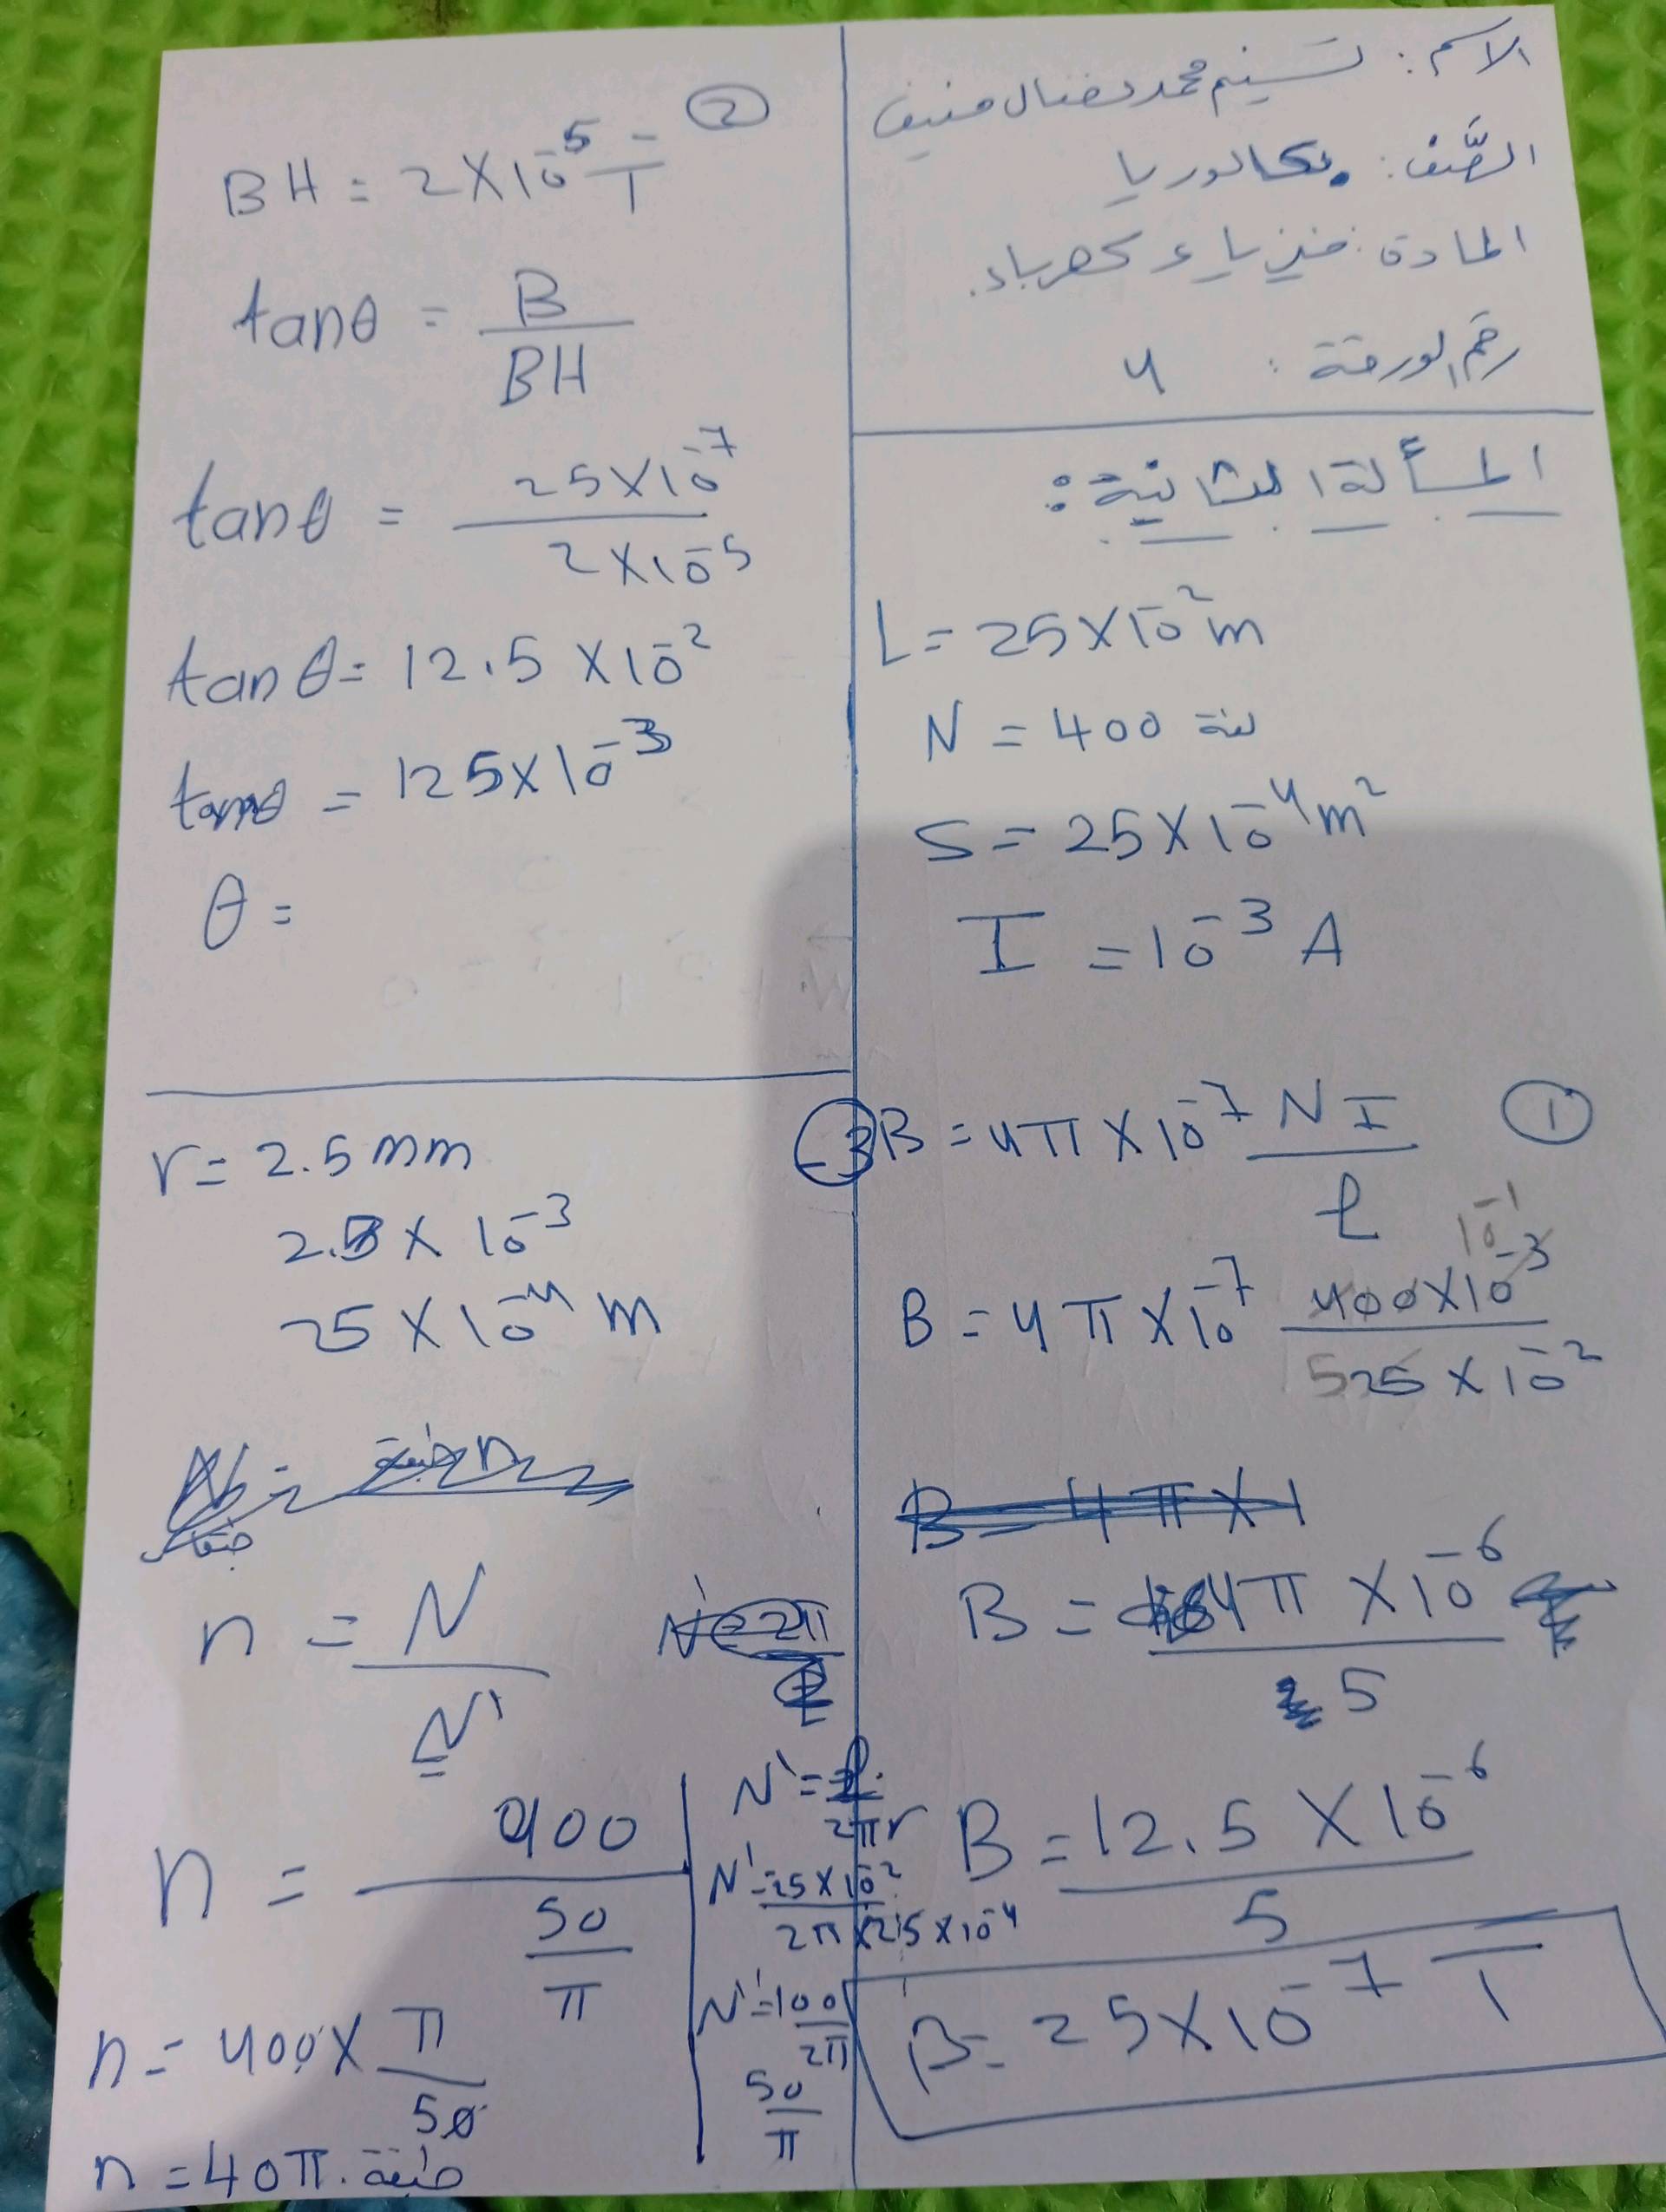 الاسم: تسنيم محمد نضال منيف
الصّف: بكالوريا
المادة: فيزياء كهرباء.
رقم الورقة: 4
المسألة الثانية:
L = 25 × 10⁻² m
N = 400 لفة
S = 25 × 10⁻⁴ m²
I = 10⁻³ A
①
B = 4π × 10⁻⁷ NI / ℓ
10⁻¹
B = 4π × 10⁻⁷ 400 × 10⁻³ / 25 × 10⁻²
5
B = 4π × 1
B = 4π × 10⁻⁶ / 5
B = 12.5 × 10⁻⁶ / 5
B = 25 × 10⁻⁷ T
②
BH = 2 × 10⁻⁵ T
tanθ = B / BH
tanθ = 25 × 10⁻⁷ / 2 × 10⁻⁵
tanθ = 12.5 × 10⁻²
tanθ = 125 × 10⁻³
θ =
-3
r = 2.5 mm
2.5 × 10⁻³
25 × 10⁻⁴ m
n = N / N'
N' = 2π
N' = ℓ / 2πr
N' = 25 × 10⁻² / 2π × 25 × 10⁻⁴
N' = 100 / 2π
50 / π
n = 400 / 50 / π
n = 400 × π / 50
n = 40π. طبقة